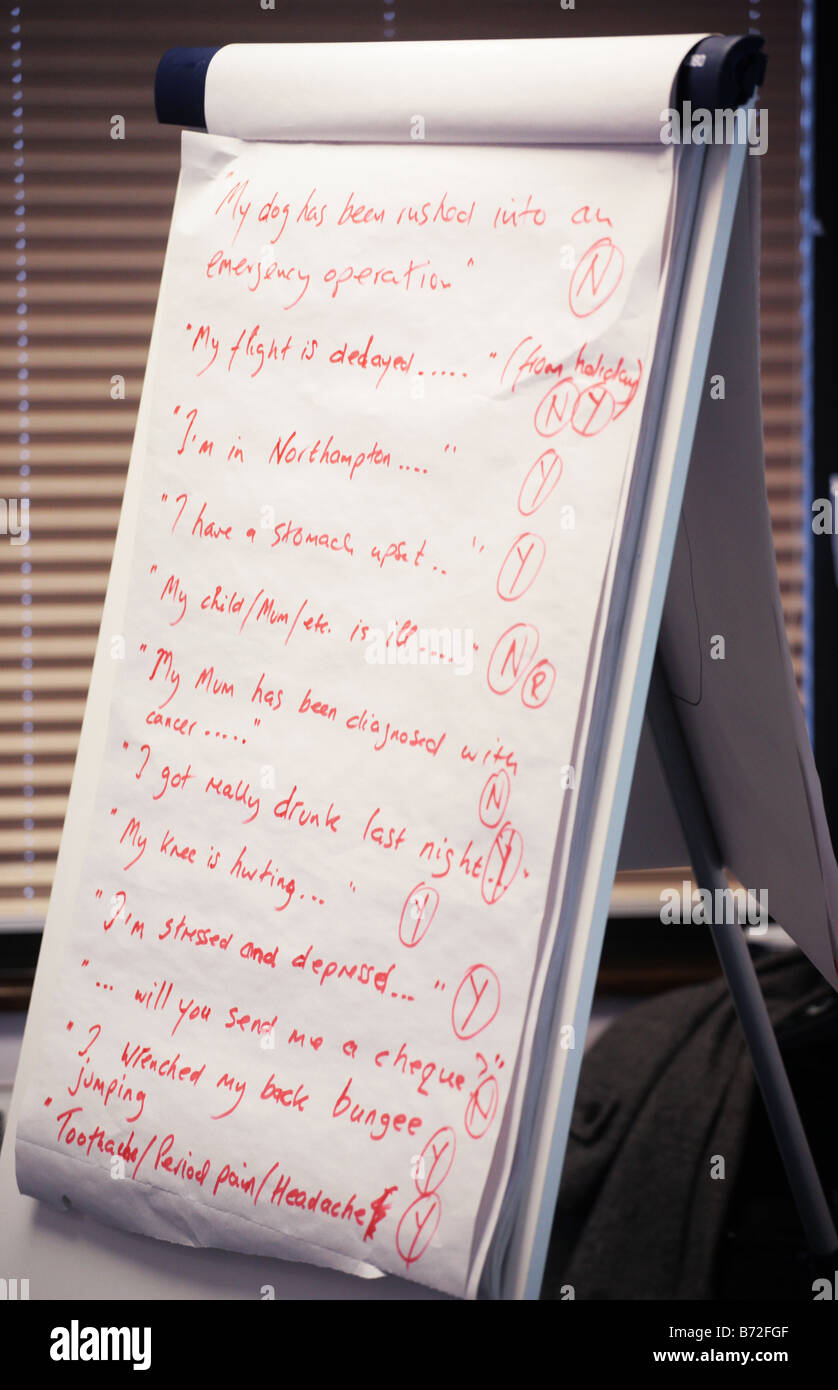 "My dog has been rushed into an
emergency operation"
N
"My flight is delayed....." (from holiday)
N Y
"I'm in Northampton...."
Y
"I have a stomach upset.."
Y
"My child/Mum/etc. is ill....."
N R
"My Mum has been diagnosed with
cancer....."
N
"I got really drunk last night..."
Y
"My knee is hurting..."
Y
"I'm stressed and depressed..."
Y
"... will you send me a cheque?"
N
"I wrenched my back bungee
jumping
Y
"Toothache/Period pain/Headache"
Y
alamy
alamy
Image ID: B72FGF
www.alamy.com